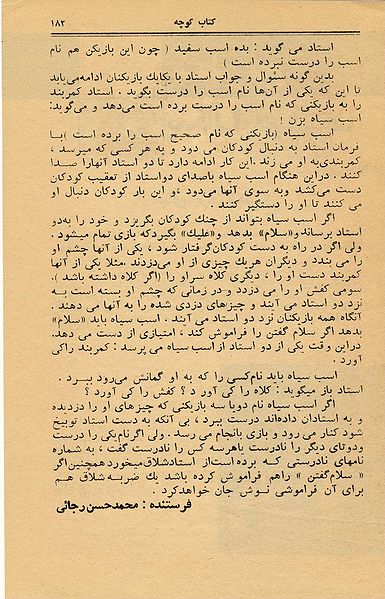 کتاب کوچه ۱۸۲
استاد می گوید : بده اسب سفید ( چون این بازیکن هم نام
اسب را درست نبرده است )
بدین گونه سئوال و جواب استاد با یکایك بازیکنان ادامه‌می‌یابد
تا این که یکی از آن‌ها نام اسب را درست بگوید . استاد کمربند
را به بازیکنی که نام اسب را درست برده است می‌دهد و می‌گوید:
اسب سیاه بزن !
اسب سیاه (بازیکنی که نام صحیح اسب را برده است )بـا
فرمان استاد به دنبال کودکان می دود و به هر کسی که میرسد ،
کمربندی‌به او می زند .این کار ادامه دارد تا دو استاد آنهارا صـدا
کنند . دراین هنگام اسب سیاه باصدای دواستاد از تعقیب کودکان
دست می‌کشد وبه سوی آنها می‌دود ،و این بار کودکان دنبال او
می کنند تا او را دستگیر کنند .
اگر اسب سیاه بتواند از چنك کودکان بگریزد و خود را به‌دو
استاد برساندو«سلام» بدهد و«علیك» بگیردکه بازی تمام میشود .
ولی اگر در راه به دست کودکان‌گرفتار شود ، یکی از آنها چشم او
را می بندد و دیگران هریك چیزی از او می‌دزدند .مثلا یکی از آنها
کمربند دست او را ، دیگری کلاه سراو را (اگر کلاه داشته باشد ).
سومی کفش او را می دزدد و در زمانی که چشم او بسته است بـه
نزد دو استاد می آیند و چیزهای دزدی شده را به آنها می دهند .
آنگاه همه بازیکنان نزد دو استاد می آیند . اسب سیاه باید «سلام»
بدهد اگر سلام گفتن را فراموش کند ، امتیازی از دست می دهد.
دراین وقت یکی از دو استاد از اسب سیاه می پرسد : کمربند راکی
آورد .
اسب سیاه باید نام‌کسی را که به او گمانش می‌رود ببـرد .
استاد باز میگوید : کلاه را کی آور د ؟ کفش را کی آورد ؟
اگر اسب سیاه نام دویا سه بازیکنی که چیزهای او را دزدیده
و به استادان داده‌اند درست ببرد ، بی آنکه به دست استاد توبیخ
شود کنار می رود و بازی بانجام می رسد . ولی اگرنام‌یکی را درست
ودوتای دیگر را نادرست یاهرسه کس را نادرست گفت ، به شماره
نامهای نادرستی کـه برده است‌از استادشلاق‌میخورد همچنین‌اگر
« سلام‌گفتن » راهم فراموش کرده باشد یك ضربـه شلاق هـم
برای آن فراموشی نـوش جان خواهدکرد .
فرستنده : محمدحسن رجائی